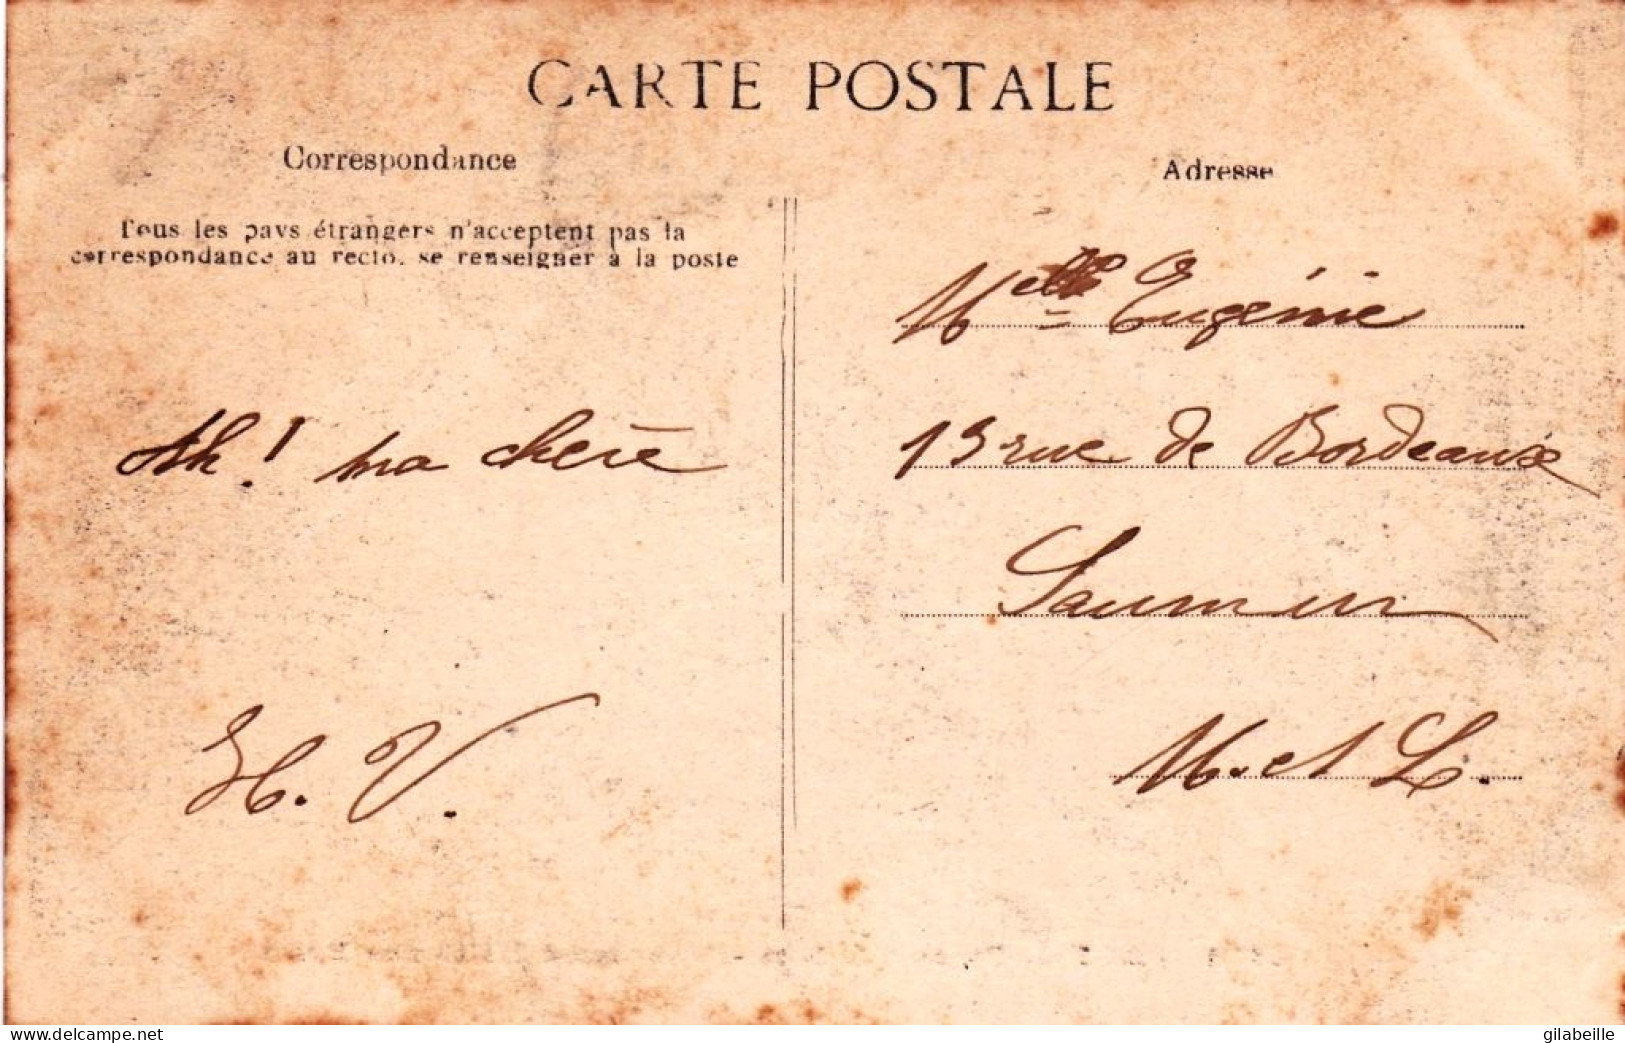 CARTE POSTALE
Correspondance
Tous les pays étrangers n'acceptent pas la
correspondance au recto, se renseigner à la poste
Ah! ma chère
H. V.
Adresse
Melle Eugénie
13 rue de Bordeaux
Saumur
M. et L.
www.delcampe.net
gilabeille